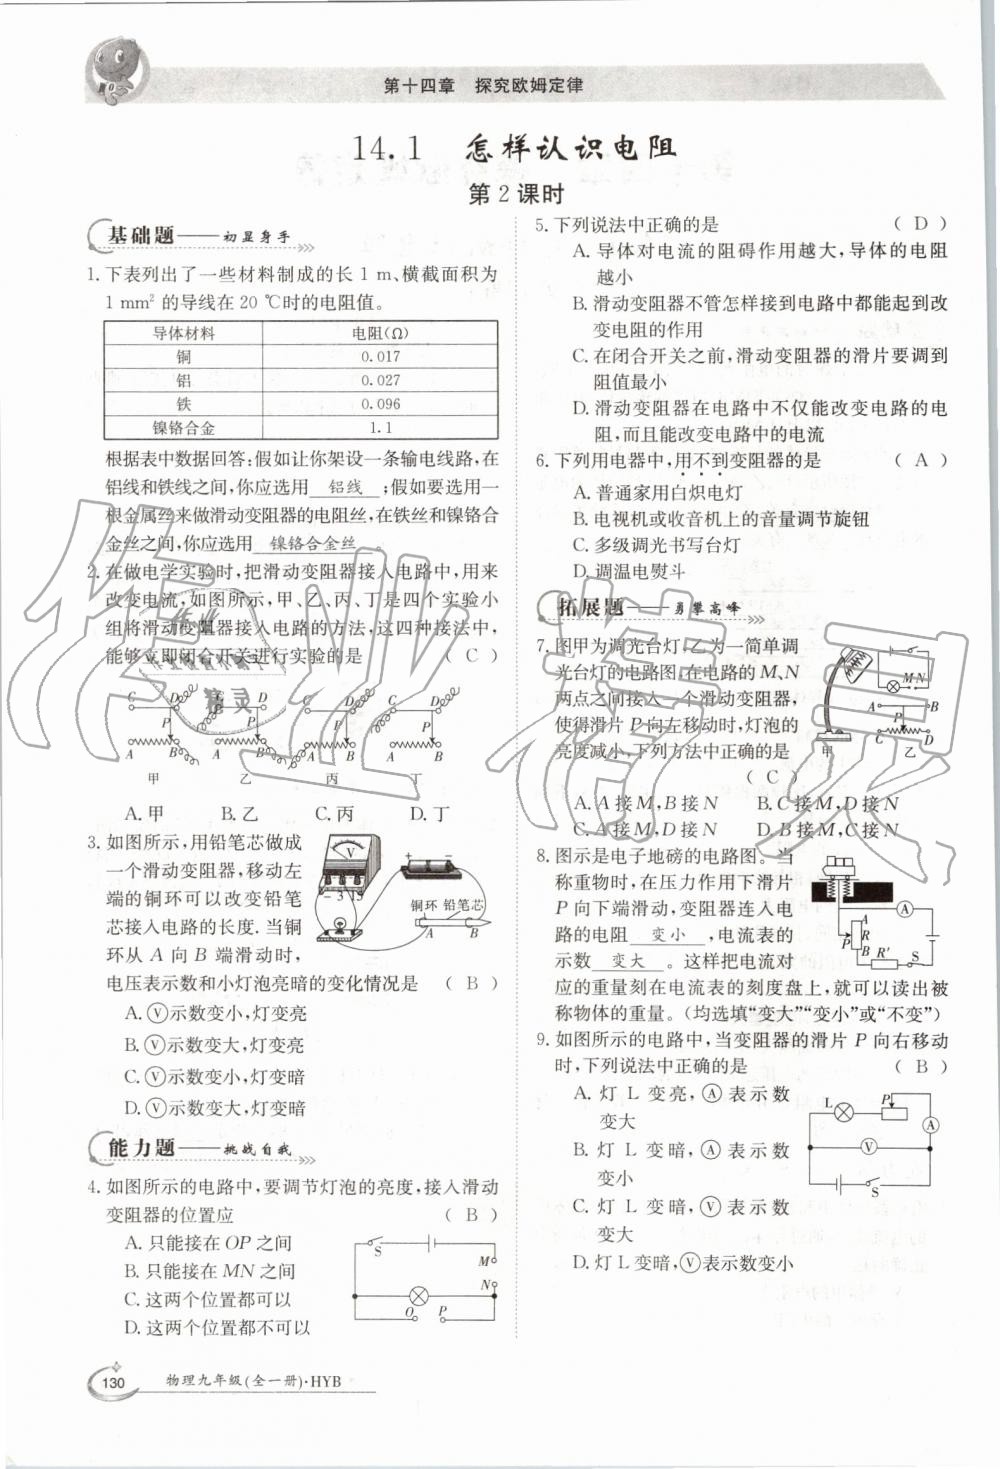 第十四章 探究欧姆定律
14.1 怎样认识电阻
第2课时
基础题——初显身手
1. 下表列出了一些材料制成的长1 m、横截面积为
1 mm² 的导线在 20 ℃时的电阻值。
导体材料 电阻(Ω)
铜 0.017
铝 0.027
铁 0.096
镍铬合金 1.1
根据表中数据回答:假如让你架设一条输电线路,在
铝线和铁线之间,你应选用 铝线 ;假如要选用一
根金属丝来做滑动变阻器的电阻丝,在铁丝和镍铬合
金丝之间,你应选用 镍铬合金丝 .
2. 在做电学实验时,把滑动变阻器接入电路中,用来
改变电流,如图所示,甲、乙、丙、丁是四个实验小
组将滑动变阻器接入电路的方法,这四种接法中,
能够立即闭合开关进行实验的是 ( C )
C D C D C D C D
P P P P
A B A B A B A B
甲 乙 丙 丁
A. 甲 B. 乙 C. 丙 D. 丁
3. 如图所示,用铅笔芯做成
一个滑动变阻器,移动左
端的铜环可以改变铅笔
芯接入电路的长度. 当铜
环从 A 向 B 端滑动时,
电压表示数和小灯泡亮暗的变化情况是 ( B )
V
- 3 15
+ -
铜环 铅笔芯
A B
A. Ⓥ示数变小,灯变亮
B. Ⓥ示数变大,灯变亮
C. Ⓥ示数变小,灯变暗
D. Ⓥ示数变大,灯变暗
能力题——挑战自我
4. 如图所示的电路中,要调节灯泡的亮度,接入滑动
变阻器的位置应 ( B )
A. 只能接在 OP 之间
B. 只能接在 MN 之间
C. 这两个位置都可以
D. 这两个位置都不可以
S
M
N
O P
5. 下列说法中正确的是 ( D )
A. 导体对电流的阻碍作用越大,导体的电阻
越小
B. 滑动变阻器不管怎样接到电路中都能起到改
变电阻的作用
C. 在闭合开关之前,滑动变阻器的滑片要调到
阻值最小
D. 滑动变阻器在电路中不仅能改变电路的电
阻,而且能改变电路中的电流
6. 下列用电器中,用不到变阻器的是 ( A )
A. 普通家用白炽电灯
B. 电视机或收音机上的音量调节旋钮
C. 多级调光书写台灯
D. 调温电熨斗
拓展题——勇攀高峰
7. 图甲为调光台灯,乙为一简单调
光台灯的电路图,在电路的 M、N
两点之间接入一个滑动变阻器,
使得滑片 P 向左移动时,灯泡的
亮度减小,下列方法中正确的是
( C )
M N
A B
P
C D
甲 乙
A. A 接 M,B 接 N B. C 接 M,D 接 N
C. A 接 M,D 接 N D. B 接 M,C 接 N
8. 图示是电子地磅的电路图。当
称重物时,在压力作用下滑片
P 向下端滑动,变阻器连入电
路的电阻 变小 ,电流表的
示数 变大 。这样把电流对
应的重量刻在电流表的刻度盘上,就可以读出被
称物体的重量。(均选填“变大”“变小”或“不变”)
A
A
P R
B R′ S
9. 如图所示的电路中,当变阻器的滑片 P 向右移动
时,下列说法中正确的是 ( B )
A. 灯 L 变亮,Ⓐ表示数
变大
B. 灯 L 变暗,Ⓐ表示数
变小
C. 灯 L 变暗,Ⓥ表示数
变大
D. 灯 L 变暗,Ⓥ表示数变小
L P
A
V
S
130 物理九年级(全一册)·HYB
作业精灵
作业
精灵